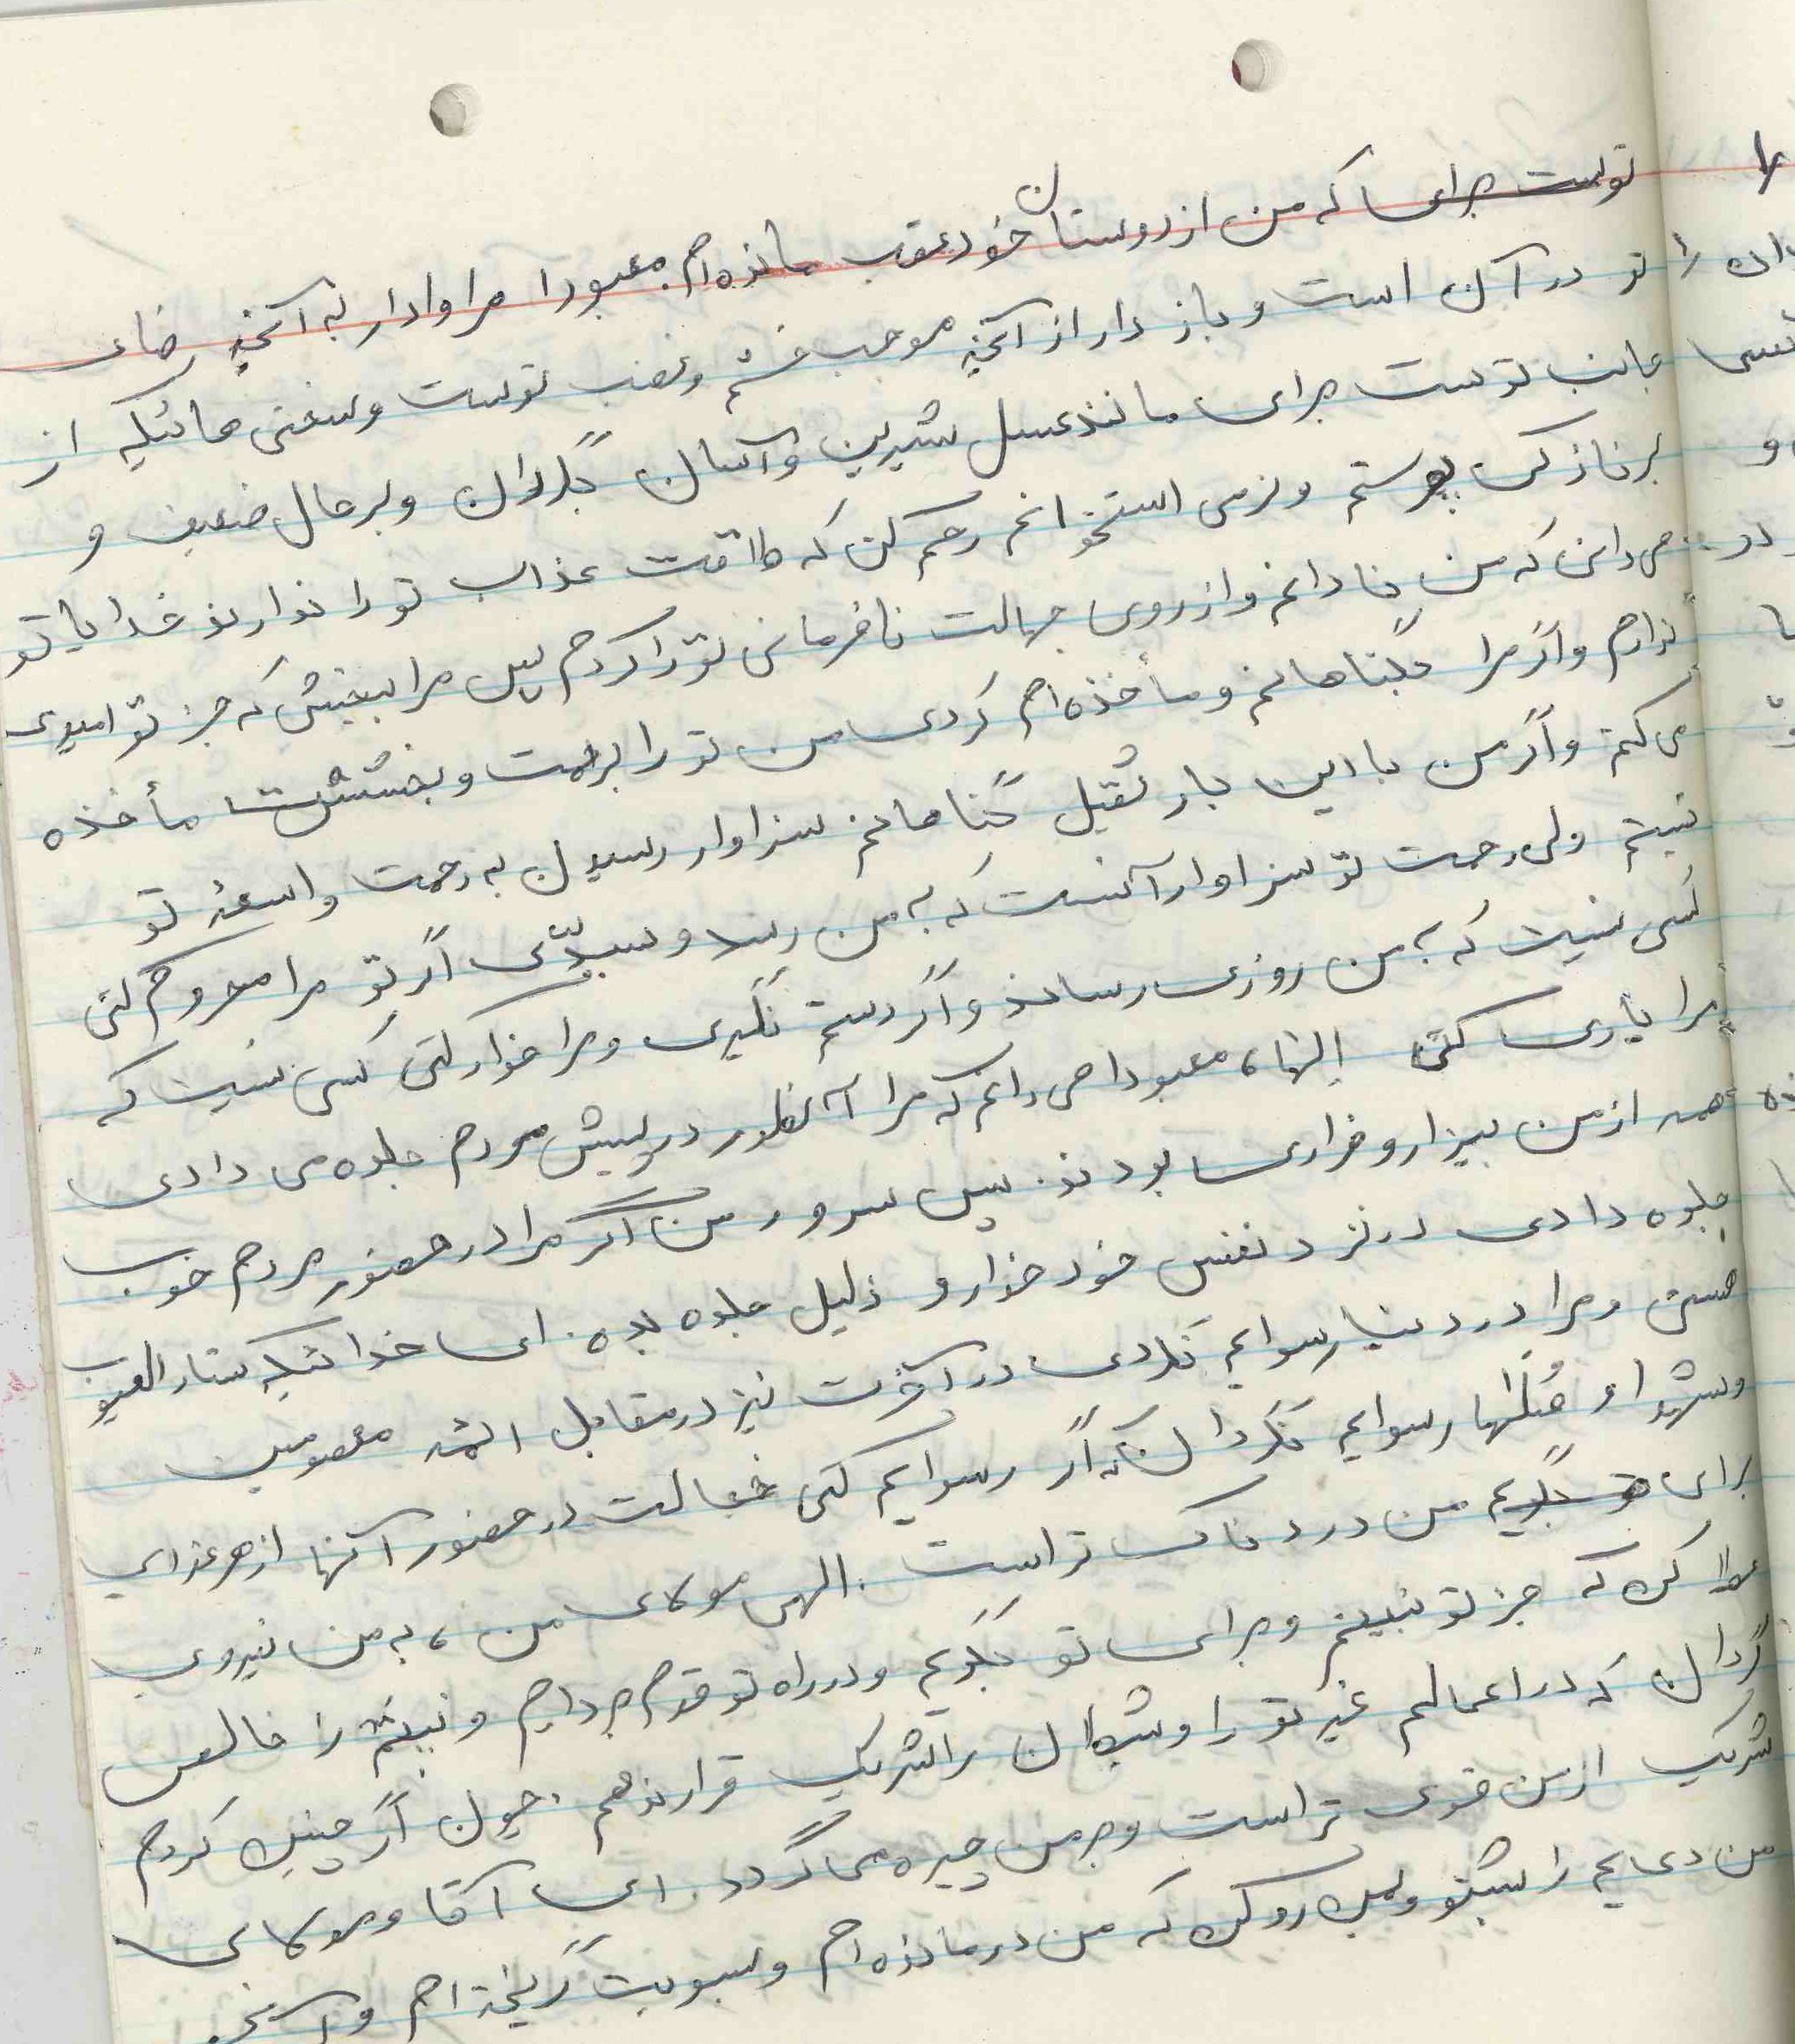 توست برای که من از دوستان خود عقب مانده‌ام. معبودا مرا وادار به آنچه رضای
تو در آن است و باز دار از آنچه موجب خشم و غضب توست و سختی هائیکه از
جانب توست برای مانند عسل شیرین و آسان بگردان و بر حال ضعیف و
بر نازکی پوستم و نرمی استخوانم رحم کن که طاقت عذاب تو را ندارند خدایا تو
می دانی که من نادانم و از روی جهالت نافرمانی تو را کردم پس مرا ببخش که جز تو امیدی
ندارم و اگر مرا بگناهانم ومأخذه ام کردی من تو را برحمت و بخششت مأخذه
می کنم و اگر من با این بار ثقیل گناهانم سزاوار رسیدن به رحمت واسعه تو
نیستم ولی رحمت تو سزاوار آنست که به من رسد و سیدی اگر تو مرا محروم کنی
کسی نیست که به من روزی رساند و اگر دستم نگیری و مرا خوار کنی کسی نیست که
مرا یاری کنی الها، معبودا می دانم که مرا آنطور در پیش مردم جلوه می دادی
همه از من بیزار و فراری بودند. پس سرور من اگر مرا در حضور مردم خوب
جلوه دادی در نزد نفس خود خوار و ذلیل جلوه بده. ای خدائیکه ستارالعیوب
هستی و مرا در دنیا رسوایم نکردی در آخرت نیز در مقابل ائمه معصومین
و شهدا و صُلَها رسوایم نگردان که اگر رسوایم کنی خجالت در حضور آنها از هر عذابی
برای من دردناک تر است. الهی مولای من، به من نیروی
عطا کن که جز تو نبینم و برای تو بگویم و در راه تو قدم بردارم و نیتم را خالص
گردان که در اعمالم غیر تو را و شیطان را شریک قرار ندهم. چون اگر چنین کردم
شریک از من قوی تر است و بر من چیره می گردد. ای آقا و مولای
من دعایم را بشنو و بمن رو کن که من درمانده ام و بسویت گریخته ام و